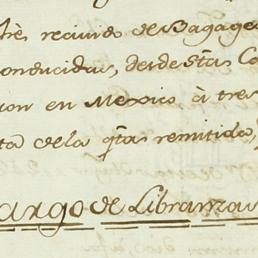 tres recivido de Bagages
conducidas, desde esta Co
ion en Mexico à tres
ta dela qtas remitido,
argo de Libranzas